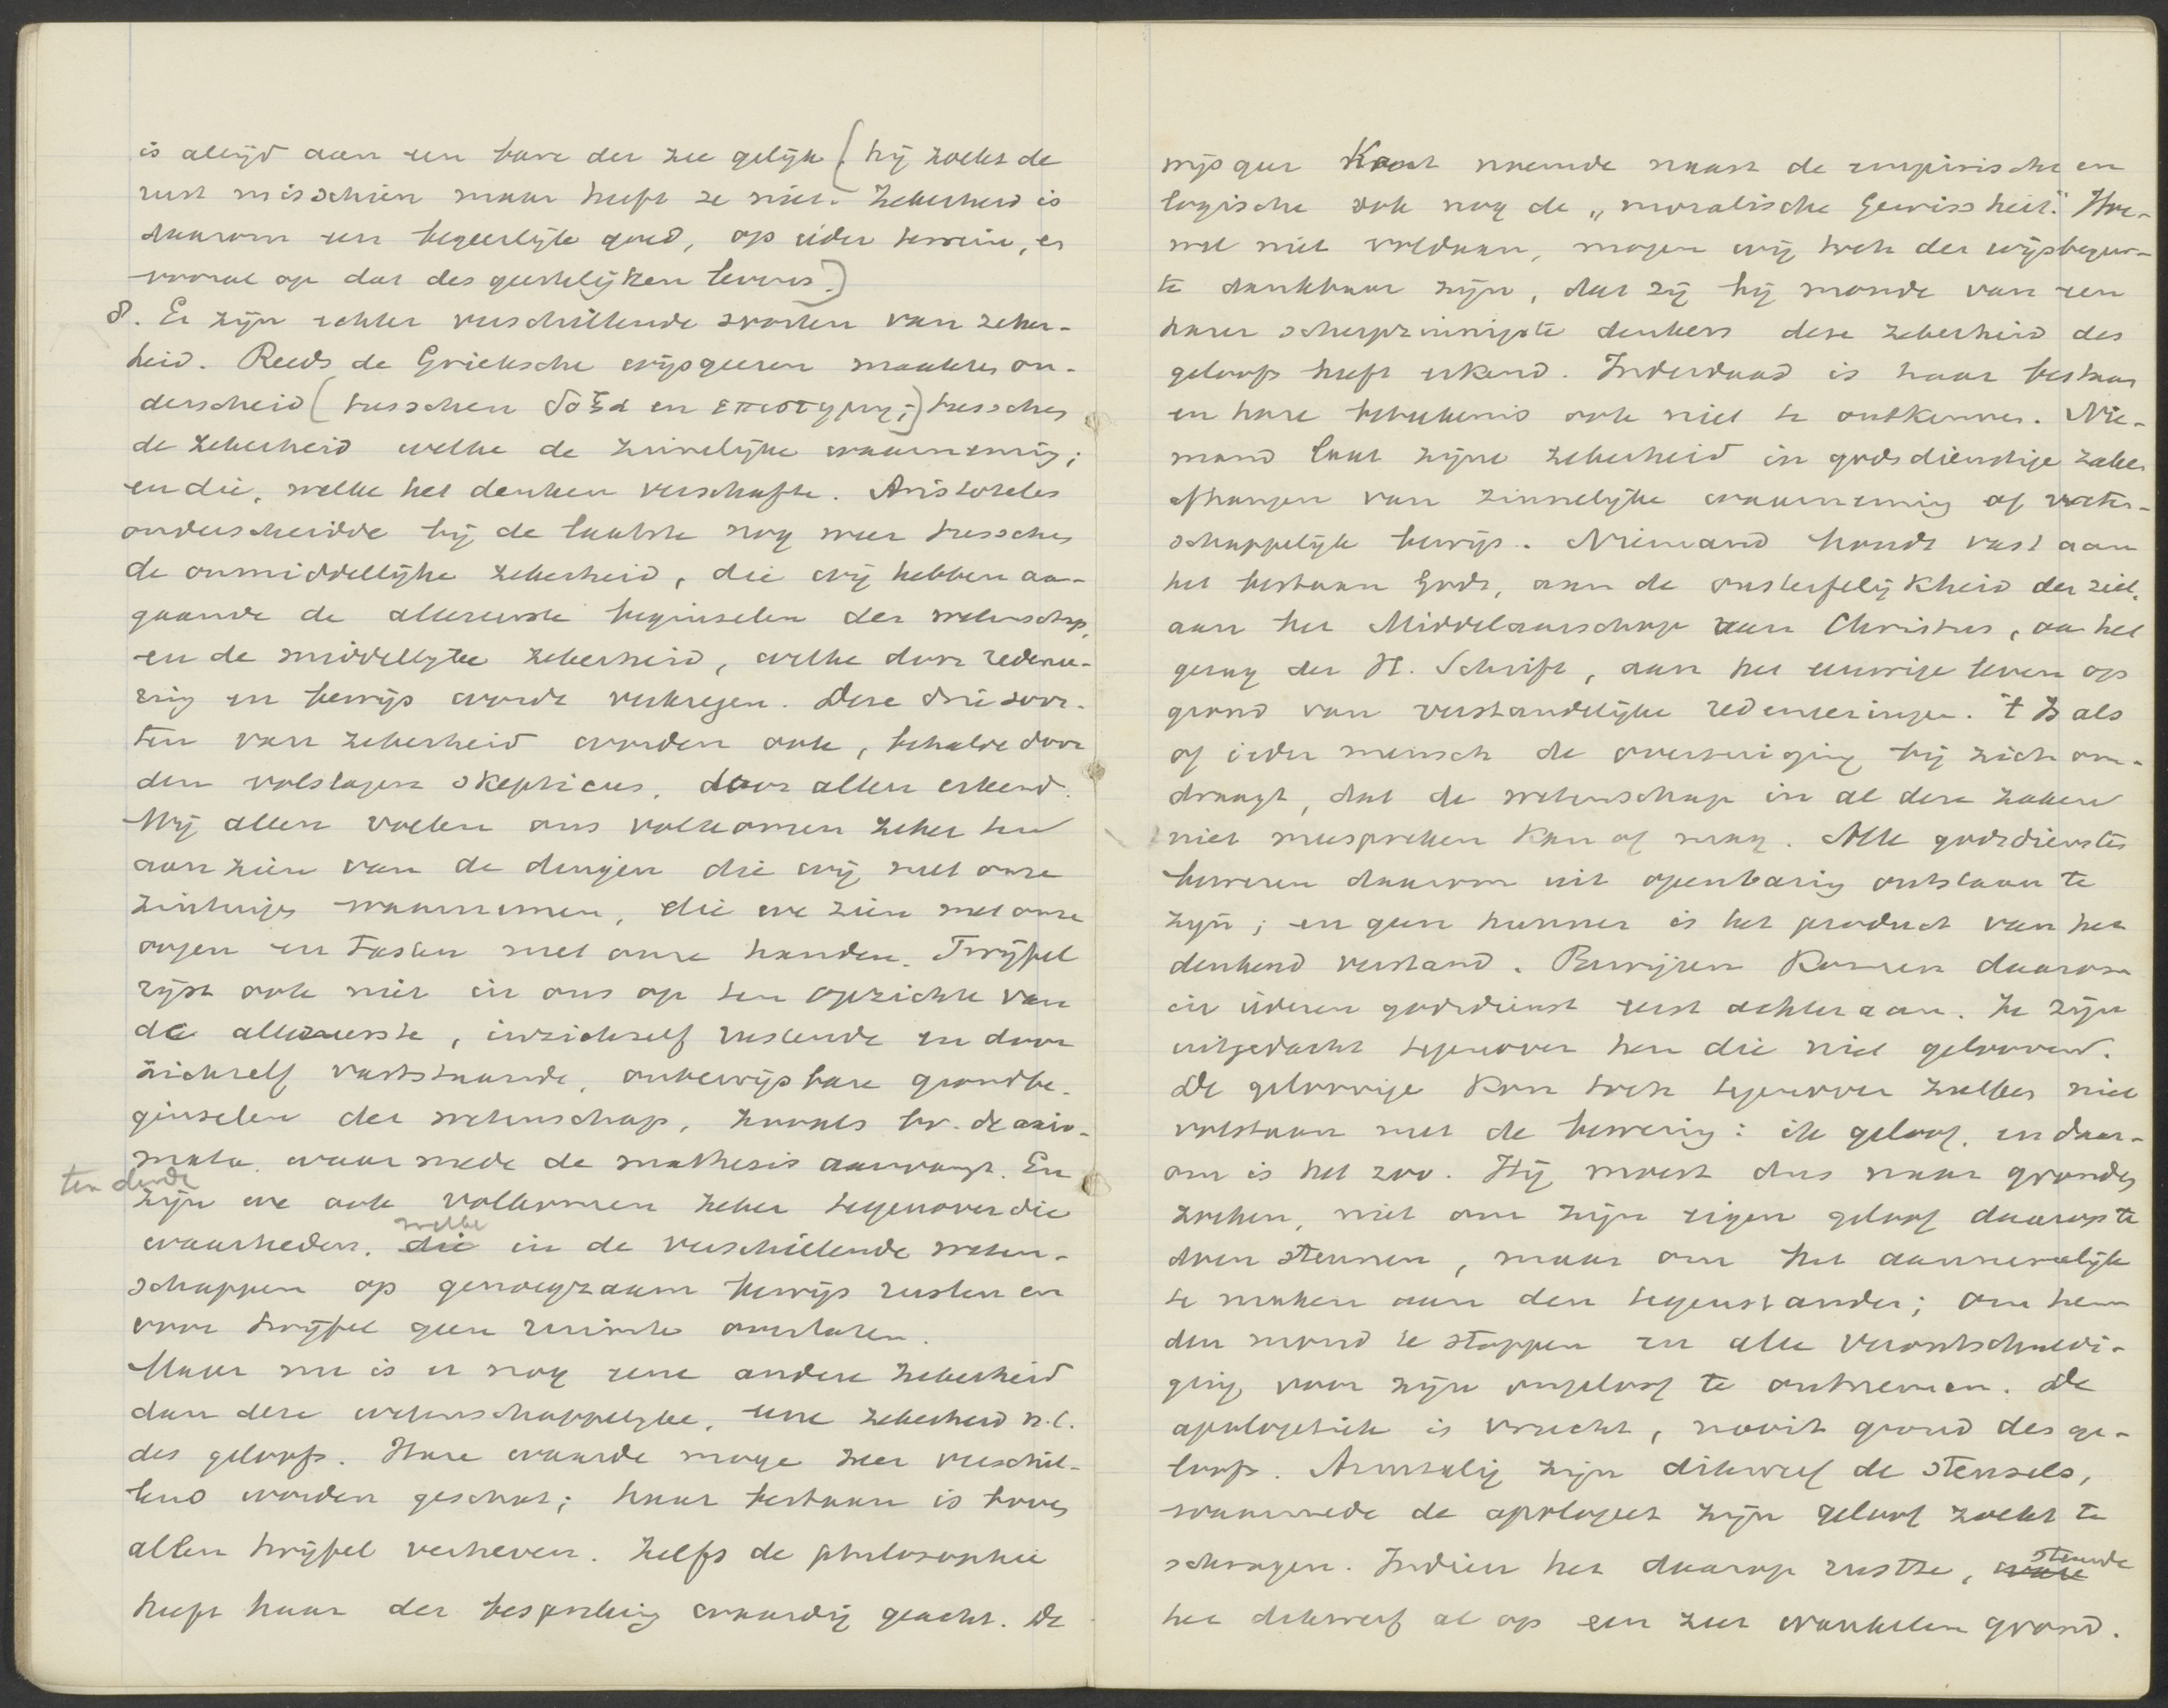 is altijd aan een bare der zee gelijk (hij zoekt de
rust misschien maar heeft ze niet. Zekerheid is
daarom een begeerlijk goed, op ieder terrein, en
vooral op dat des geestelijken levens.)
8. Er zijn echter verschillende soorten van zeker-
heid. Reeds de Grieksche wijsgeeren maakten on-
derscheid (tusschen δοξα en επιστημη;) tusschen
de zekerheid welke de zinnelijke waarneming;
en die, welke het denken verschafte. Aristoteles
onderscheidde bij de laatste nog weer tusschen
de onmiddellijke zekerheid, die wij hebben aan-
gaande de allereerste beginselen der wetenschap,
en de middellijke zekerheid, welke door redenee-
ring en bewijs wordt verkregen. Deze drie soor-
ten van zekerheid worden ook, behalve door
den volslagen skepticus, door allen erkend.
Wij allen voelen ons volkomen zeker ten
aanzien van de dingen die wij met onze
zintuigen waarnemen, die we zien met onze
oogen en tasten met onze handen. Twijfel
rijst ook niet in ons op ten opzichte van
de allereerste, inzichzelf rustende en door
zichzelf vaststaande, onbewijsbare grondbe-
ginselen der wetenschap, zooals bv. de axio-
mata waarmede de mathesis aanvangt. En
ten derde
zijn we ook volkomen zeker tegenover die
welke
waarheden, die in de verschillende weten-
schappen op genoegzaam bewijs rusten en
voor twijfel geen ruimte overlaten.
Maar nu is er nog eene andere zekerheid
dan deze wetenschappelijke, eene zekerheid n.l.
des geloofs. Hare waarde moge zeer verschil-
lend worden geschat; haar bestaan is boven
allen twijfel verheven. Zelfs de philosophie
heeft haar der bespreking waardig geacht. De
wijsgeer Kant noemde naast de empirische en
logische ook nog de „moralische Gewissheit." Hoe-
wel niet voldaan, mogen wij toch der wijsbegeer-
te dankbaar zijn, dat zij bij monde van een
harer scherpzinnigste denkers deze zekerheid des
geloofs heeft erkend. Inderdaad is haar bestaan
en hare beteekenis ook niet te ontkennen. Nie-
mand laat zijne zekerheid in godsdienstige zaken
afhangen van zinnelijke waarneming of weten-
schappelijk bewijs. Niemand houdt vast aan
het bestaan Gods, aan de onsterfelijkheid der ziel,
aan het Middelaarschap van Christus, aan het
gezag der H. Schrift, aan het eeuwige leven op
grond van verstandelijke redeneeringen. 't Is als
of ieder mensch de overtuiging bij zich om-
draagt, dat de wetenschap in al deze zaken
niet meespreken kan of mag. Alle godsdiensten
beweren daarom uit openbaring ontstaan te
zijn; en geen hunner is het product van het
denkend verstand. Bewijzen komen daarom
in iederen godsdienst eerst achteraan. Ze zijn
uitgedacht tegenover hen die niet gelooven.
De geloovige kon toch tegenover zulken niet
volstaan met de bewering: ik geloof, en daar-
om is het zoo. Hij moest dus naar gronden
zoeken, niet om zijn eigen geloof daarop te
doen steunen, maar om het aannemelijk
te maken aan den tegenstander; om hem
den mond te stoppen en alle verontschuldi-
ging voor zijn ongeloof te ontnemen. De
apologetiek is vrucht, nooit grond des ge-
loofs. Armzalig zijn dikwerf de stensels,
waarmede de apologeet zijn geloof zoekt te
schragen. Indien het daarop rustte, stonde
het dikwerf al op een zeer wankelen grond.